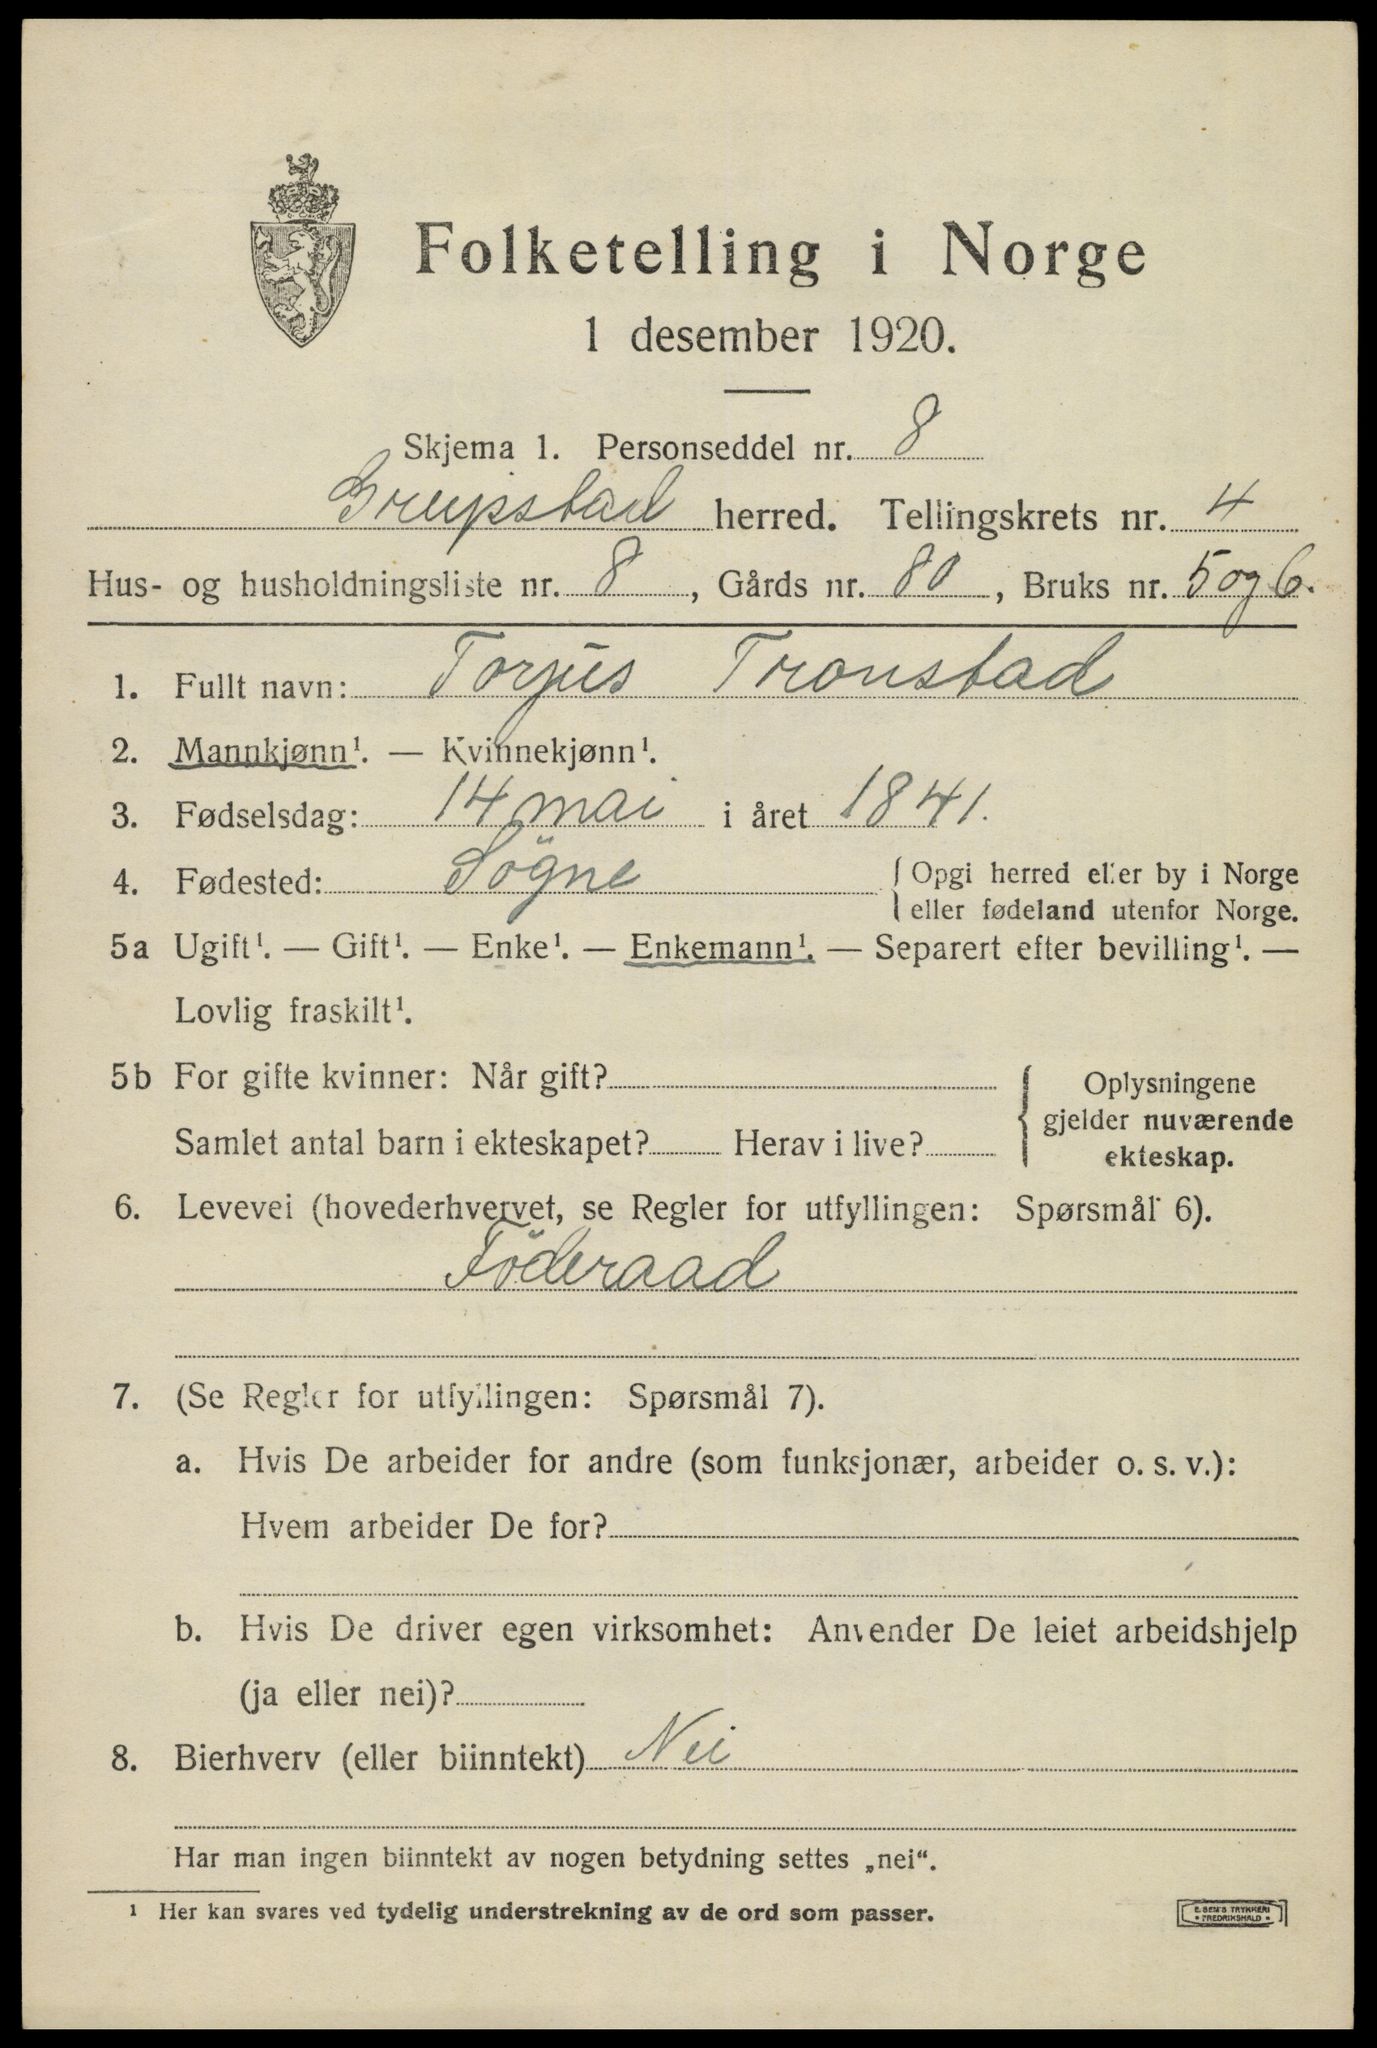 Folketelling i Norge
1 desember 1920.
Skjema 1. Personseddel nr. 8
Greipstad herred. Tellingskrets nr. 4
Hus- og husholdningsliste nr. 8, Gårds nr. 80, Bruks nr. 5 og 6.
1. Fullt navn: Torjus Tronstad
2. Mannkjønn¹. — Kvinnekjønn¹.
3. Fødselsdag: 14 mai i året 1841.
4. Fødested: Søgne { Opgi herred eller by i Norge
eller fødeland utenfor Norge.
5a Ugift¹. — Gift¹. — Enke¹. — Enkemann¹. — Separert efter bevilling¹. —
Lovlig fraskilt¹.
5b For gifte kvinner: Når gift?
Samlet antal barn i ekteskapet? Herav i live?
{ Oplysningene
gjelder nuværende
ekteskap.
6. Levevei (hovederhvervet, se Regler for utfyllingen: Spørsmål 6).
Föderaad
7. (Se Regler for utfyllingen: Spørsmål 7).
a. Hvis De arbeider for andre (som funksjonær, arbeider o. s. v.):
Hvem arbeider De for?
b. Hvis De driver egen virksomhet: Anvender De leiet arbeidshjelp
(ja eller nei)?
8. Bierhverv (eller biinntekt) Nei
Har man ingen biinntekt av nogen betydning settes „nei“.
¹ Her kan svares ved tydelig understrekning av de ord som passer.
E. SEM'S TRYKKERI
• FREDRIKSHALD •